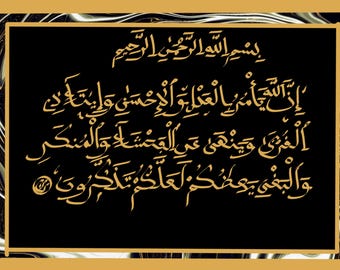 بِسْمِ اللهِ الرَّحْمٰنِ الرَّحِيمِ
إِنَّ اللَّهَ يَأْمُرُ بِالْعَدْلِ وَالْإِحْسَٰنِ وَإِيتَآءِ ذِي
الْقُرْبَىٰ وَيَنْهَىٰ عَنِ الْفَحْشَآءِ وَالْمُنكَرِ
وَالْبَغْيِ يَعِظُكُمْ لَعَلَّكُمْ تَذَكَّرُونَ